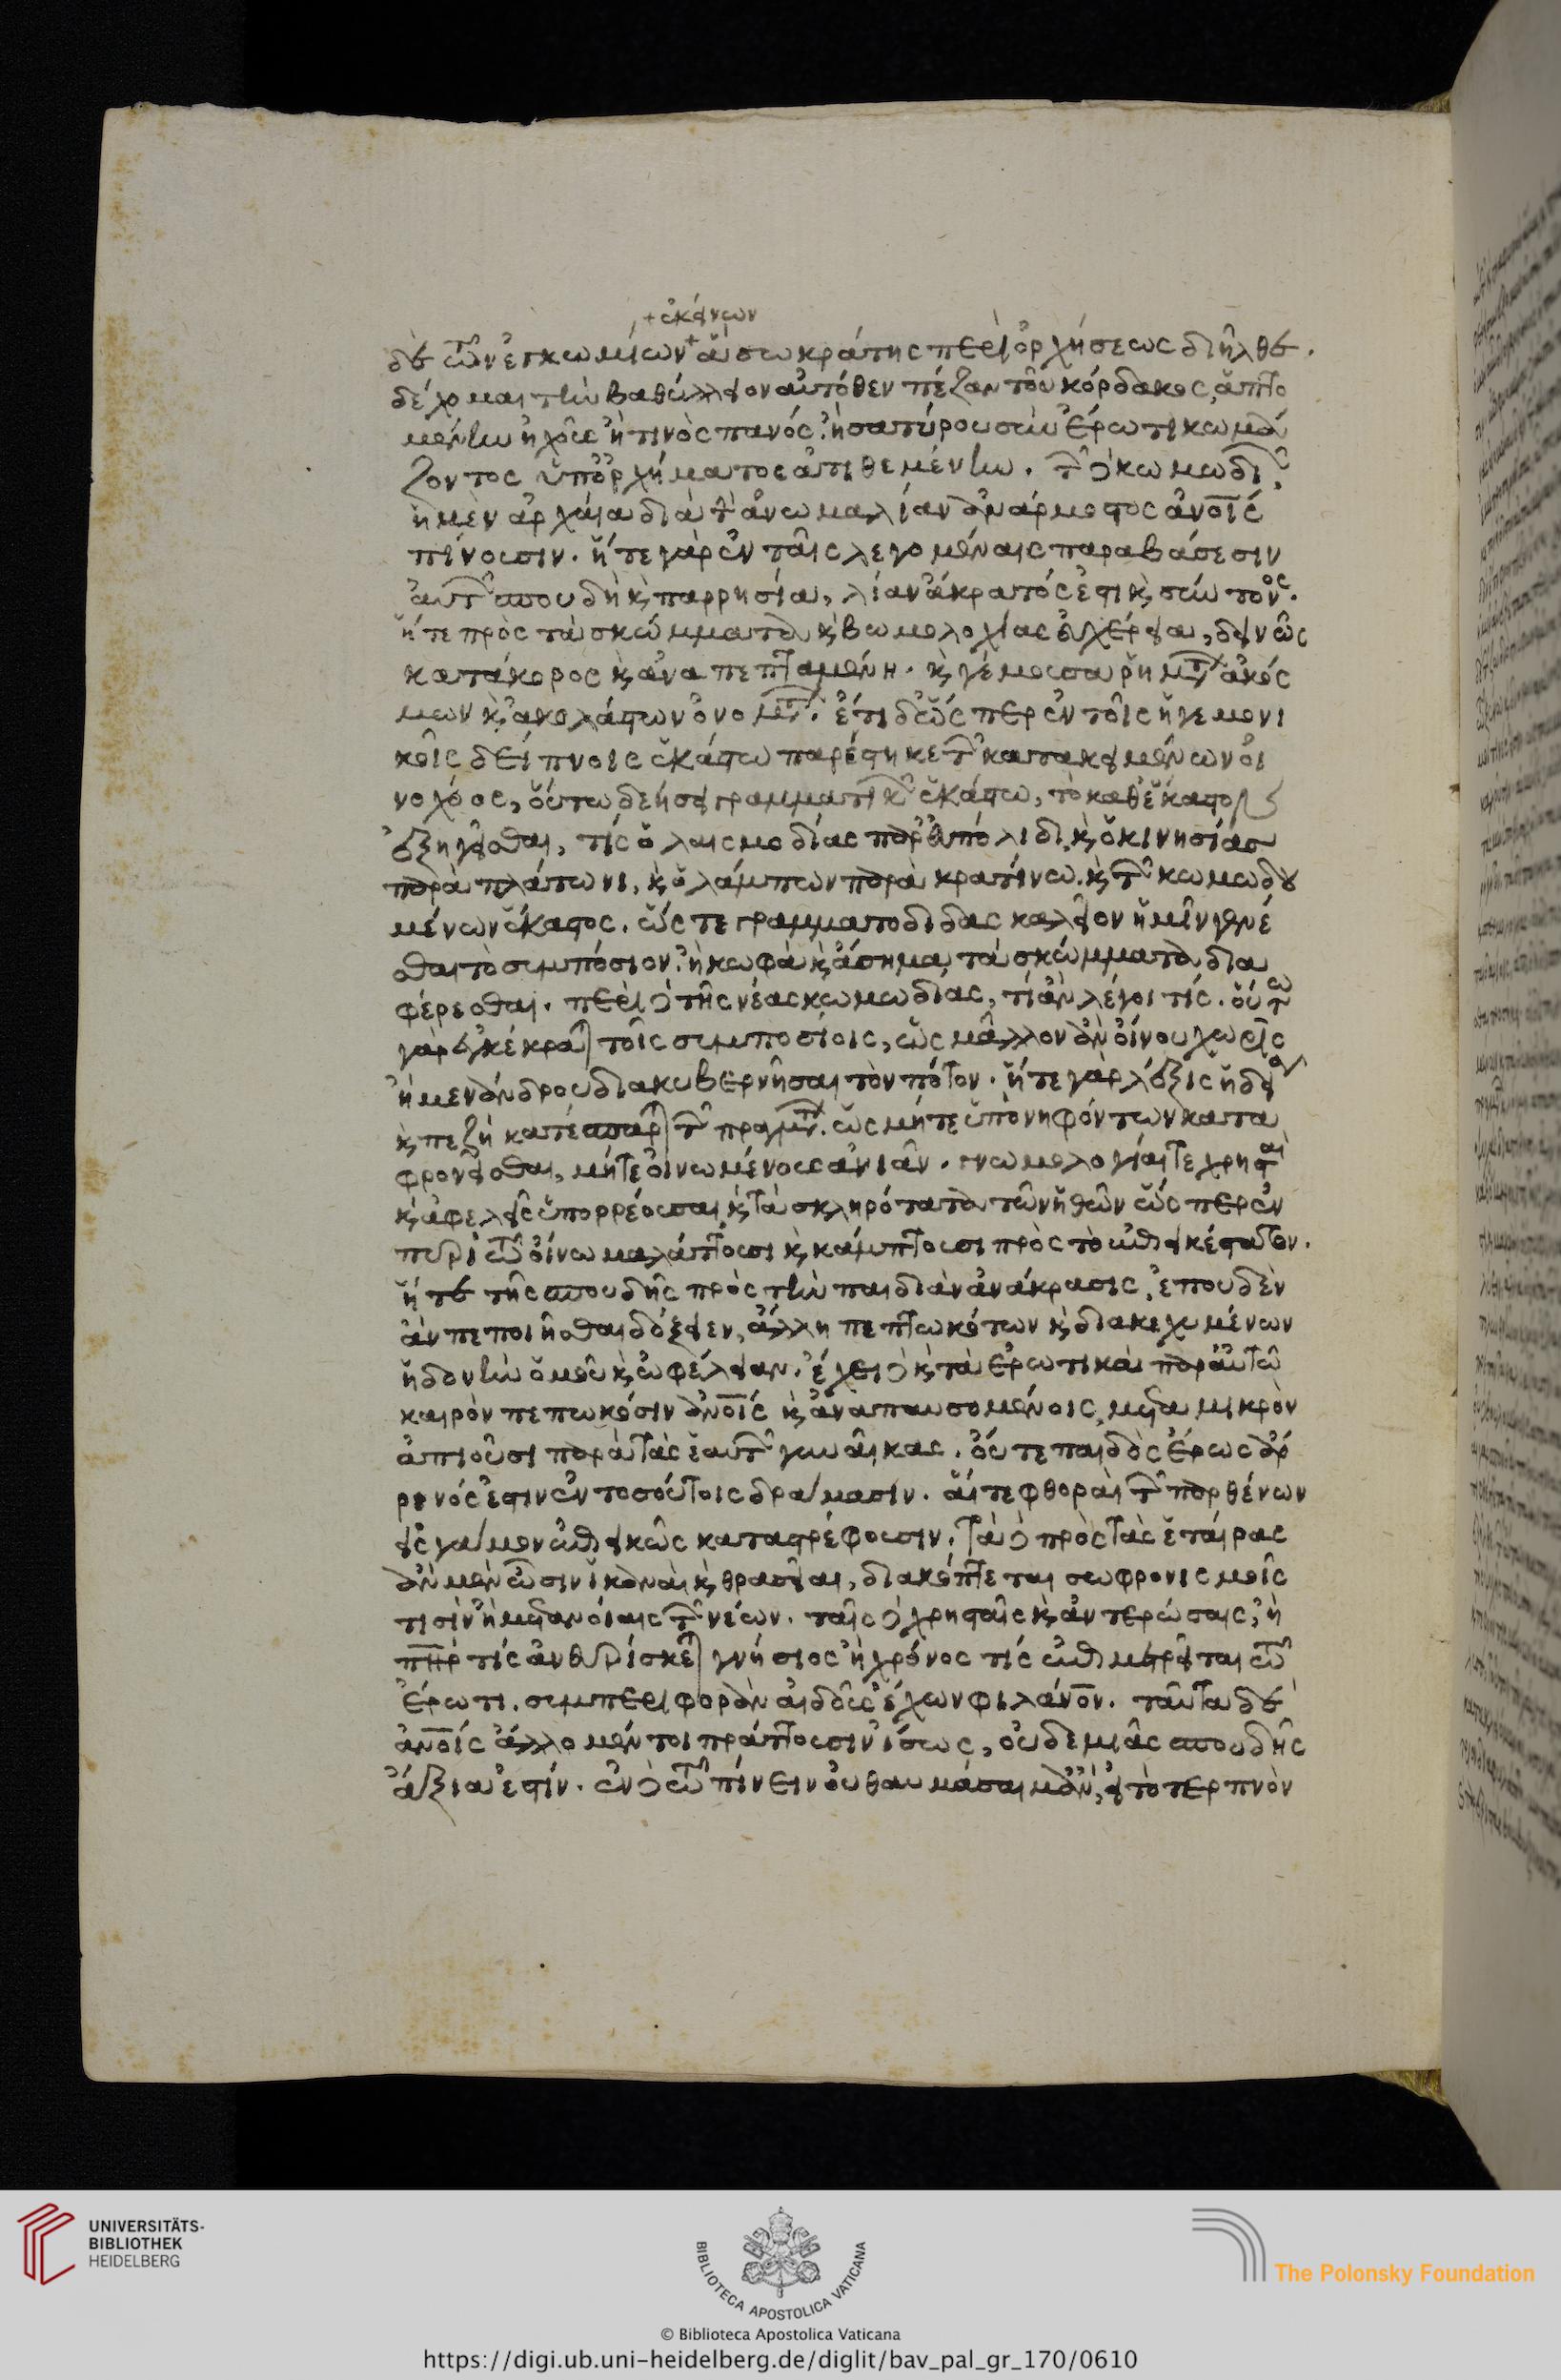 + ἐκείνων
δὲ τῶν ἐγκωμίων + ἃ σωκράτης περὶ ὀρχήσεως διῆλθε.
δέχομαι τὴν βαθύλλειον αὐτόθεν πέζαν τοῦ κόρδακος ἁπτο
μένην ἠχοῦς ἢ τινὸς πανός. ἢ σατύρου σὺν ἔρωτι κωμά
ζοντος ὑπορχήματος ἀτιθεμένην. τῶν δὲ κωμωδιῶν,
ἡ μὲν ἀρχαία διὰ τὴν ἀνωμαλίαν ἀνάρμοστος ἀνοις
πίνουσιν. ἥ τε γὰρ ἐν ταῖς λεγομέναις παραβάσεσιν
αὐτῶν σπουδὴ κ παρρησία, λίαν ἄκρατός ἐστι κ σύντονος.
ἥ τε πρὸς τὰ σκώμματα κ βωμολοχίας εὐχέρεια, δεινῶς
κατάκορος κ ἀναπεπταμένη. κ γέμουσα ῥημάτων ἀκόσ
μων κ ἀκολάστων ὀνομάτων. ἔτι δ' ὥσπερ ἐν τοῖς ἡγεμονι
κοῖς δείπνοις ἑκάστω παρέστηκε τῶν κατακειμένων οἰ
νοχόος, οὕτω δεήσει γραμματικὸν ἑκάστω, τὸ καθ' ἕκαστον
ἐξηγεῖσθαι, τίς ὁ λαισμοδίας παρ' εὐπόλιδι, κ ὁ κινησίας
παρὰ πλάτωνι, κ ὁ λάμπων παρὰ κρατίνω. κ τῶν κωμωδου
μένων ἕκαστος. ὥς τε γραμματοδιδασκαλεῖον ἡμῖν γενέ
σθαι τὸ συμπόσιον. ἢ κωφὰ κ ἄσημα τὰ σκώμματα δια
φέρεσθαι. περὶ δὲ τῆς νέας κωμωδίας, τί ἂν λέγοι τίς. οὕτω
γὰρ ἐγκέκραται τοῖς συμποσίοις, ὡς μᾶλλον ἂν οἴνου χωρὶς
ἢ μενάνδρου διακυβερνῆσαι τὸν πότον. ἥ τε γὰρ λέξις ἡδεῖα
κ πεζὴ κατέσπαρται τῶν πραγμάτων. ὡς μήτε ὑπὸ νηφόντων κατα
φρονεῖσθαι, μήτε οἰνωμένους ἀνιᾶν. γνωμολογίαι τε χρησταὶ
κ ἀφελεῖς ὑπορρέουσαι, κ τὰ σκληρότατα τῶν ἠθῶν ὥσπερ ἐν
πυρὶ τῶ οἴνω μαλάττουσι κ κάμπτουσι πρὸς τὸ ἐπιεικέστατον.
ἥ τε τῆς σπουδῆς πρὸς τὴν παιδιὰν ἀνάκρασις, ἐπ' οὐδὲν
ἂν πεποιῆσθαι δόξειεν, ἄλλη πεπτωκότων κ διακεχυμένων
ἡδονὴν ὁμοῦ κ ὠφέλειαν. ἔχει δὲ κ τὰ ἐρωτικὰ παρ' αὐτῶ
καιρὸν πεπωκόσιν ἀνοις κ ἀναπαυσομένοις μετὰ μικρὸν
ἀπιοῦσι παρὰ τὰς ἑαυτῶν γυναῖκας. οὔτε παιδὸς ἔρως ἄρ
ρενός ἐστιν ἐν τοσούτοις δράμασιν. αἵ τε φθοραὶ τῶν παρθένων
εἰς γάμον ἐπιεικῶς καταστρέφουσιν. τὰ δὲ πρὸς τὰς ἑταίρας
ἂν μὲν ὦσιν ἰταμαὶ κ θρασεῖαι, διακόπτεται σωφρονισμοῖς
τισὶν ἢ μετανοίαις τῶν νέων. ταῖς δὲ χρησταῖς κ ἀντερώσαις, ἢ
πηρ τίς ἀνευρίσκεται γνήσιος ἢ χρόνος τίς ἐπιμετρεῖται τῶ
ἔρωτι, συμπεριφορὰν αἰδοῦς ἔχων φιλάνον. ταῦτα δὲ
ἀνοις ἄλλο μέν τοι πράττουσιν ἴσως, οὐδεμιᾶς σπουδῆς
ἄξια ἐστίν. ἐν δὲ τῶ πίνειν οὐ θαυμάσαιμ' ἂν, εἰ τὸ τερπνὸν
UNIVERSITÄTS-
BIBLIOTHEK
HEIDELBERG
BIBLIOTECA APOSTOLICA VATICANA
The Polonsky Foundation
© Biblioteca Apostolica Vaticana
https://digi.ub.uni-heidelberg.de/diglit/bav_pal_gr_170/0610